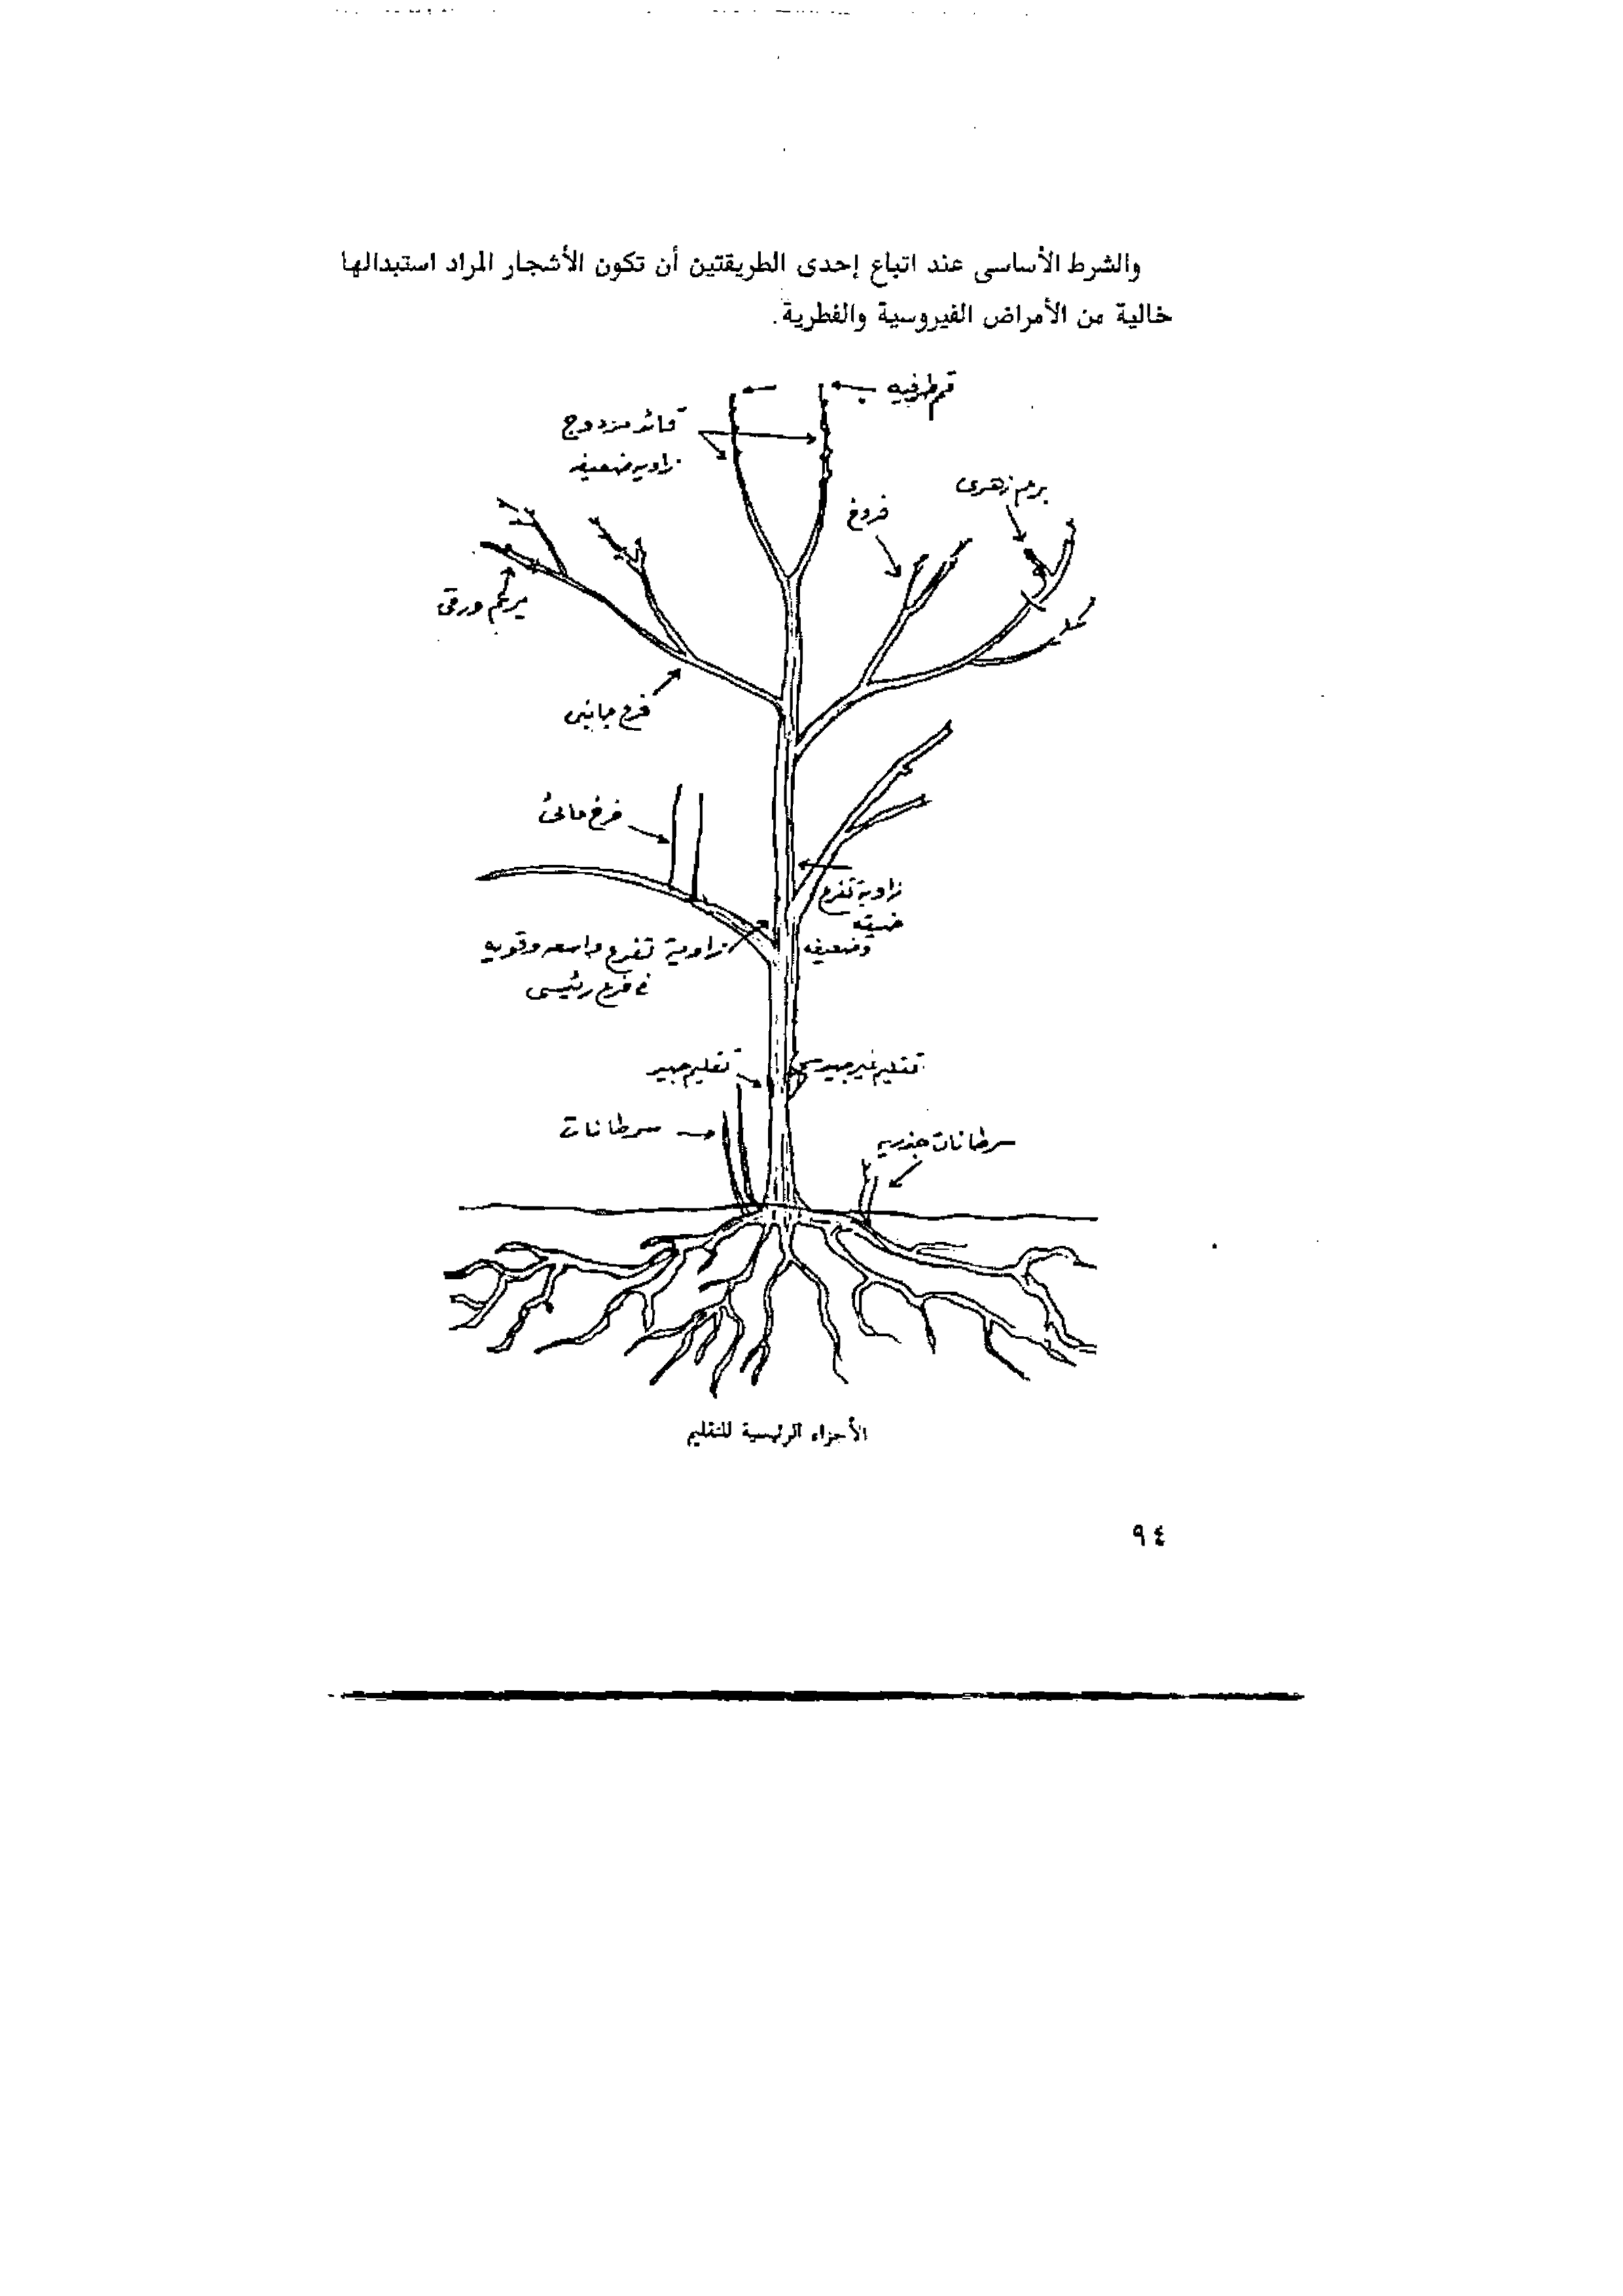 والشرط الأساسى عند اتباع إحدى الطريقتين أن تكون الأشجار المراد استبدالها
خالية من الأمراض الفيروسية والفطرية.
قمم طرفيه
قائد مزدوج
زاويه ضعيفه
برعم زهرى
فروخ
برعم ورقى
فرع جانبى
فرخ مائى
زاوية تفرع
ضيقه
وضعيفه
زاوية تفرع واسعه وقويه
فى فرع رئيسى
تقليم غير جيد
تقليم جيد
سرطانات
سرطانات جذريه
الأجزاء الرئيسية للتقليم
٩٤